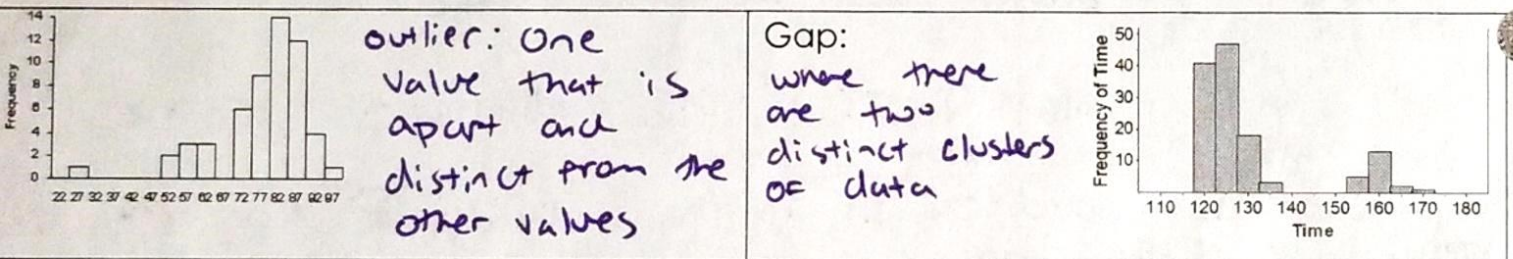 14
12
10
8
6
4
2
0
Frequency
22 27 32 37 42 47 52 57 62 67 72 77 82 87 92 97
outlier: one
value that is
apart and
distinct from the
other values
Gap:
where there
are two
distinct clusters
of data
50
40
30
20
10
Frequency of Time
110 120 130 140 150 160 170 180
Time